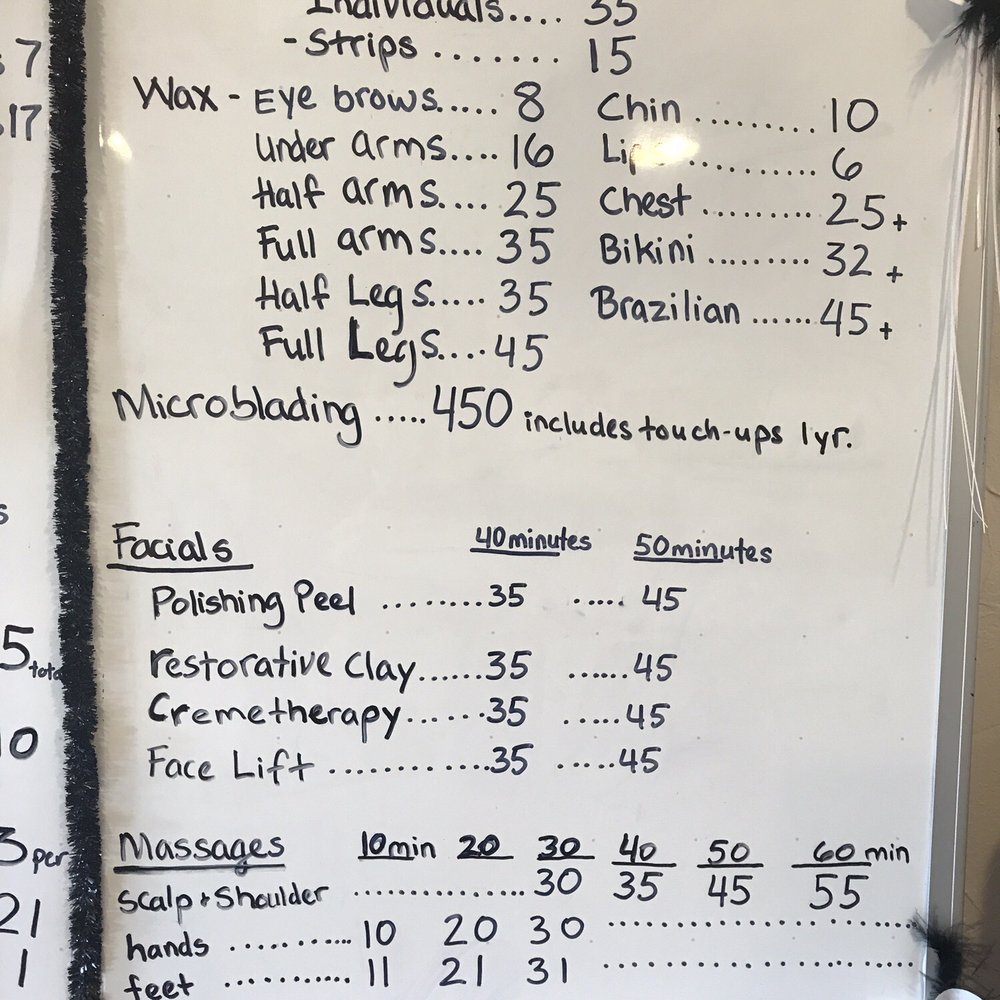 Individuals.... 35
- Strips ....... 15
Wax - Eye brows..... 8 Chin ......... 10
Under arms.... 16 Lip .......... 6
Half arms.... 25 Chest ......... 25+
Full arms.... 35 Bikini ......... 32+
Half Legs..... 35 Brazilian ...... 45+
Full Legs.... 45
Microblading ..... 450 includes touch-ups 1yr.
Facials 40 minutes 50 minutes
Polishing Peel ......... 35 ..... 45
restorative Clay...... 35 ...... 45
Cremetherapy....... 35 ..... 45
Face Lift .............. 35 ..... 45
Massages 10min 20 30 40 50 60 min
Scalp + Shoulder ............... 30 35 45 55
hands ........... 10 20 30 ....................
feet ........... 11 21 31 ....................
7
17
5 total
10
3 per
21
1